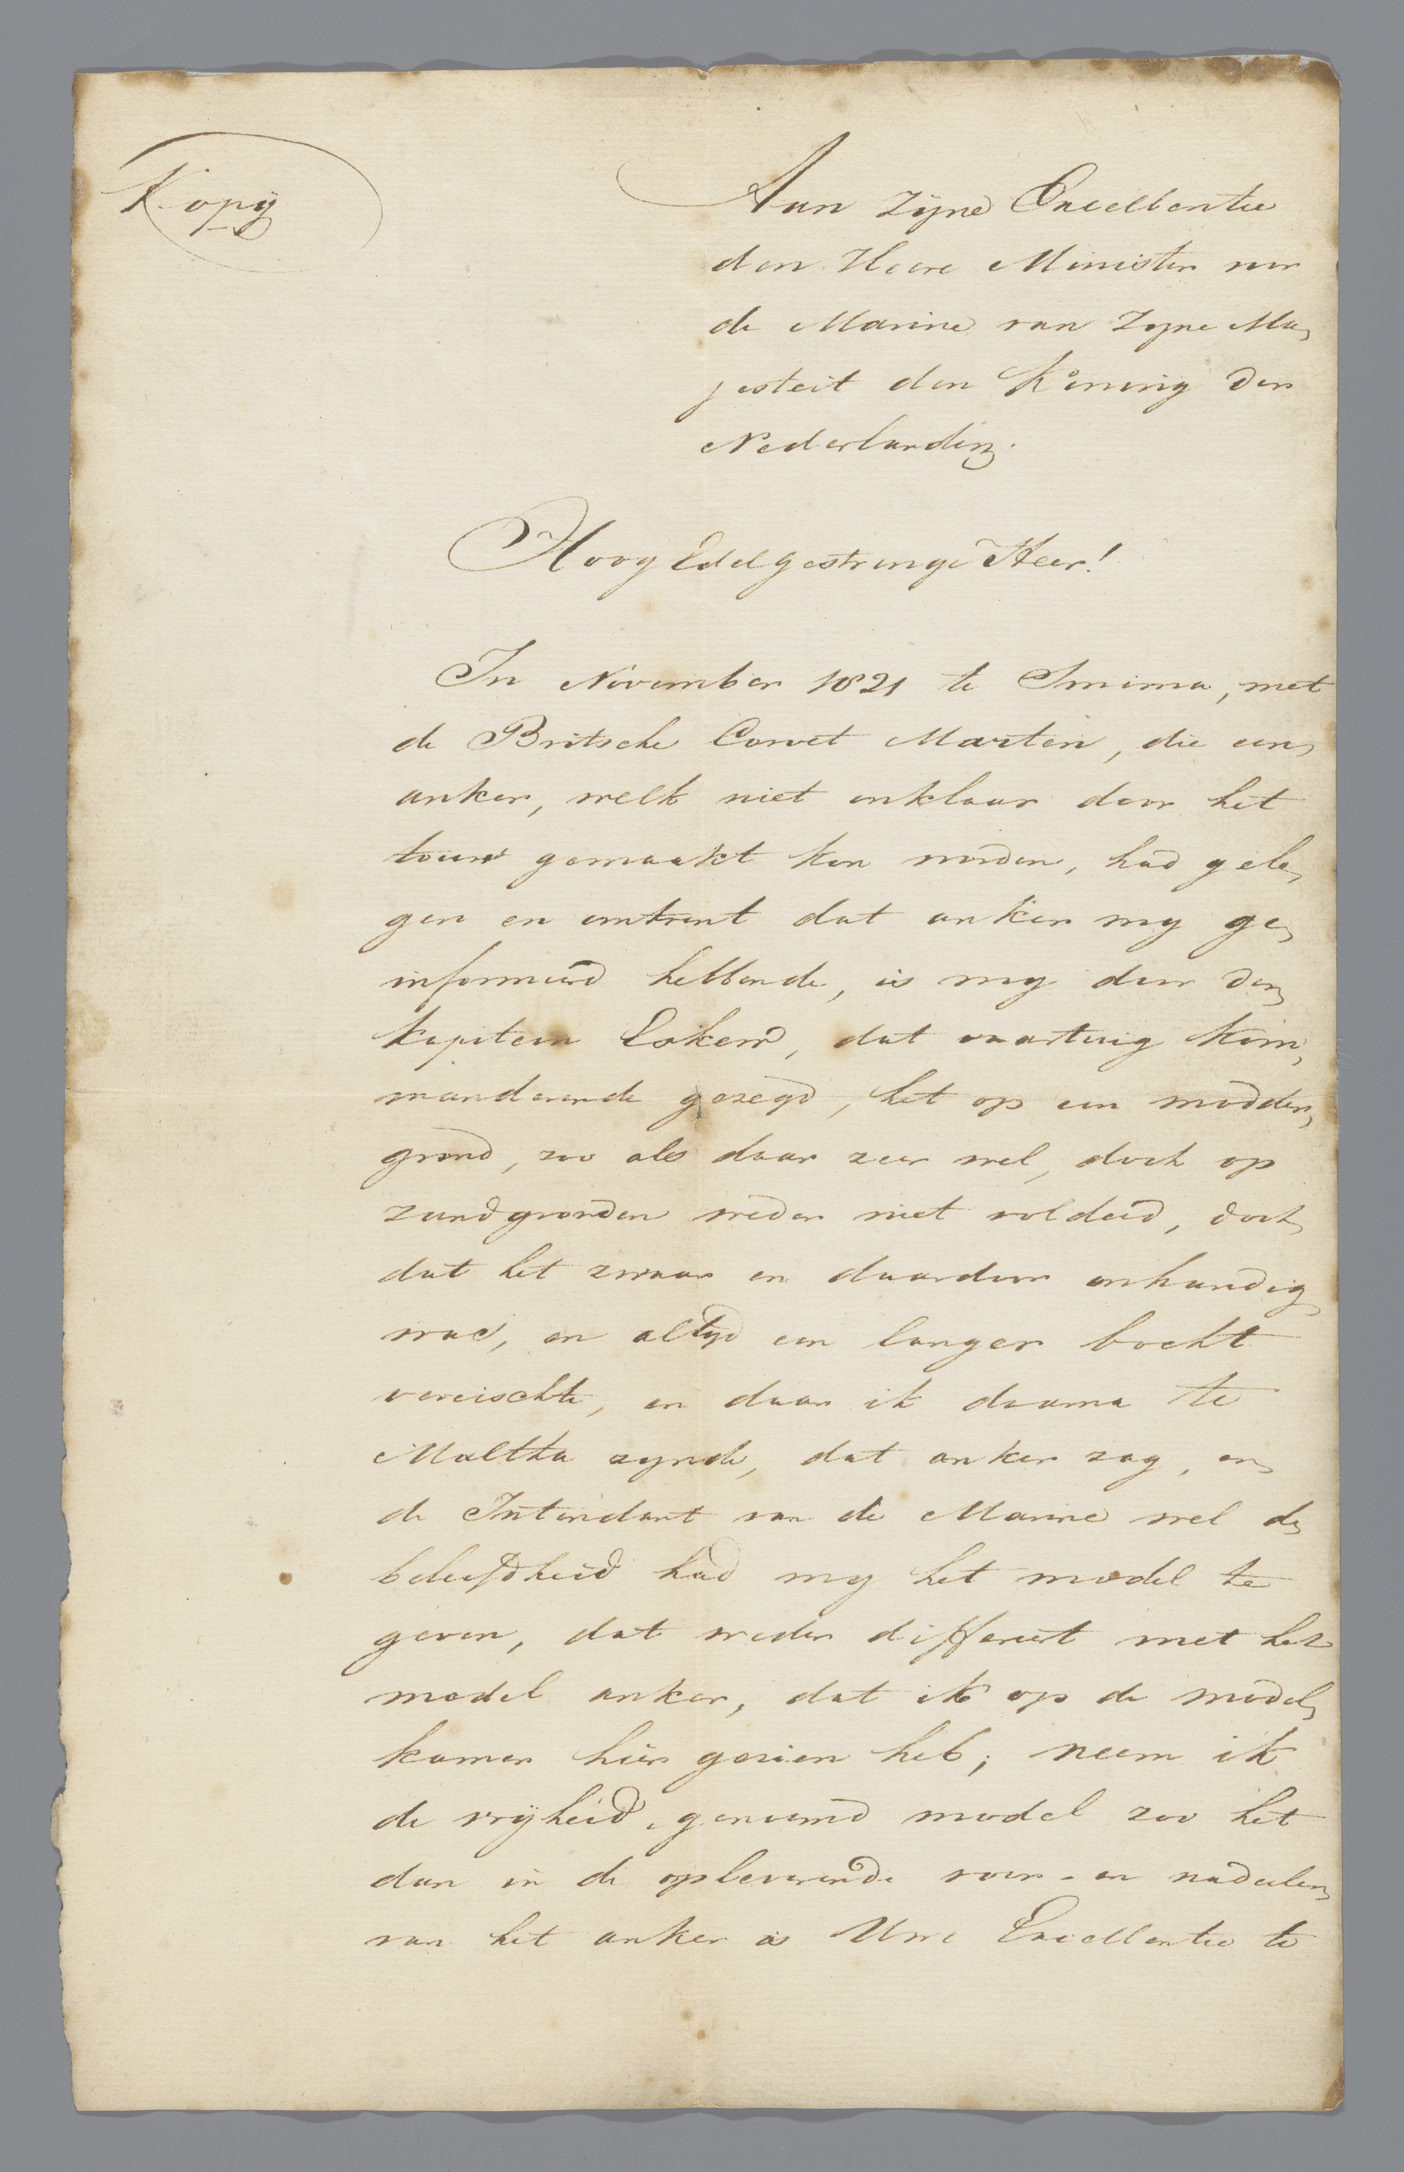 Kopij
Aan Zijne Excellentie
den Heere Minister voor
de Marine van Zyne Ma,
jesteit den Koning der
Nederlanden.
Hoog Edelgestrenge Heer!
In November 1821 te Smirna, met
de Britsche Corvet Martin, die een,
anker, welk niet onklaar door het
touw gemaakt kon worden, had gele,
gen en omtrent dat anker my ge,
informeerd hebbende, is my door den,
kapitein , dat vaartuig kom,
mandeerende gezegd, het op een modder,
grond, zoo als daar zeer wel, doch op
zandgronden weder niet voldeed, doch,
dat het zwaar en daardoor onhandig
was, en altyd een langer bocht
vereischte, en daar ik daarna te
Maltha zynde, dat anker zag, en,
de Intendant van de Marine wel de,
beleefdheid had my het model te
geven, dat weder differeert met het
model anker, dat ik op de model,
kamer hier gezien heb; neem ik
de vrijheid, genoemd model zoo het
dan in de opleverende voor- en nadeelen,
van het anker is Uwe Excellentie te